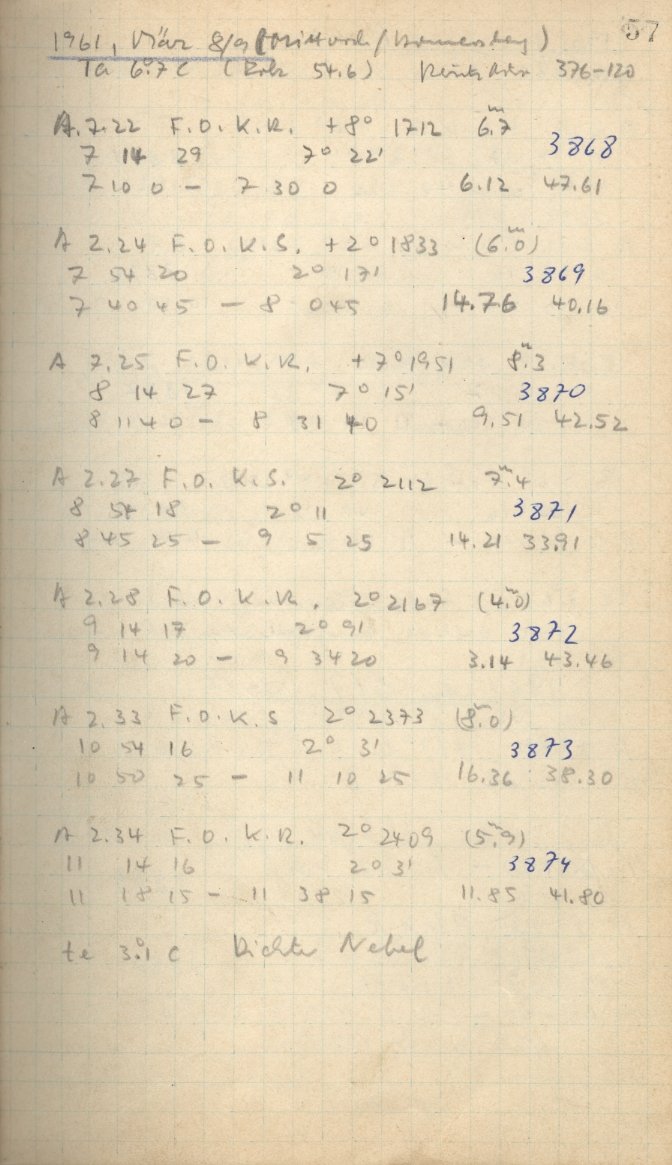 57
1961, März 8/9 (Mittwoch/Donnerstag)
Ta 6°.7 C ( 54.6) 376-120
A.7.22 F.O.K.R. +8° 1712 6.7ᵐ
7 14 29 7° 22' 3868
7 10 0 - 7 30 0 6.12 47.61
A 2.24 F.O.K.S. +2° 1833 (6.0ᵐ)
7 54 20 2° 17' 3869
7 40 45 - 8 0 45 14.76 40.16
A 7.25 F.O.K.R. +7° 1951 8.3ᵐ
8 14 27 7° 15' 3870
8 11 40 - 8 31 40 9.51 42.52
A 2.27 F.O.K.S. 2° 2112 7.4ᵐ
8 54 18 2° 11 3871
8 45 25 - 9 5 25 14.21 33.91
A 2.28 F.O.K.R. 2° 2167 (4.0ᵐ)
9 14 17 2° 9' 3872
9 14 20 - 9 34 20 3.14 43.46
A 2.33 F.O.K.S 2° 2373 (8.0ᵐ)
10 54 16 2° 3' 3873
10 50 25 - 11 10 25 16.36 38.30
A 2.34 F.O.K.R. 2° 2409 (5.9ᵐ)
11 14 16 2° 3' 3874
11 18 15 - 11 38 15 11.85 41.80
te 3°.1 C Dichter Nebel